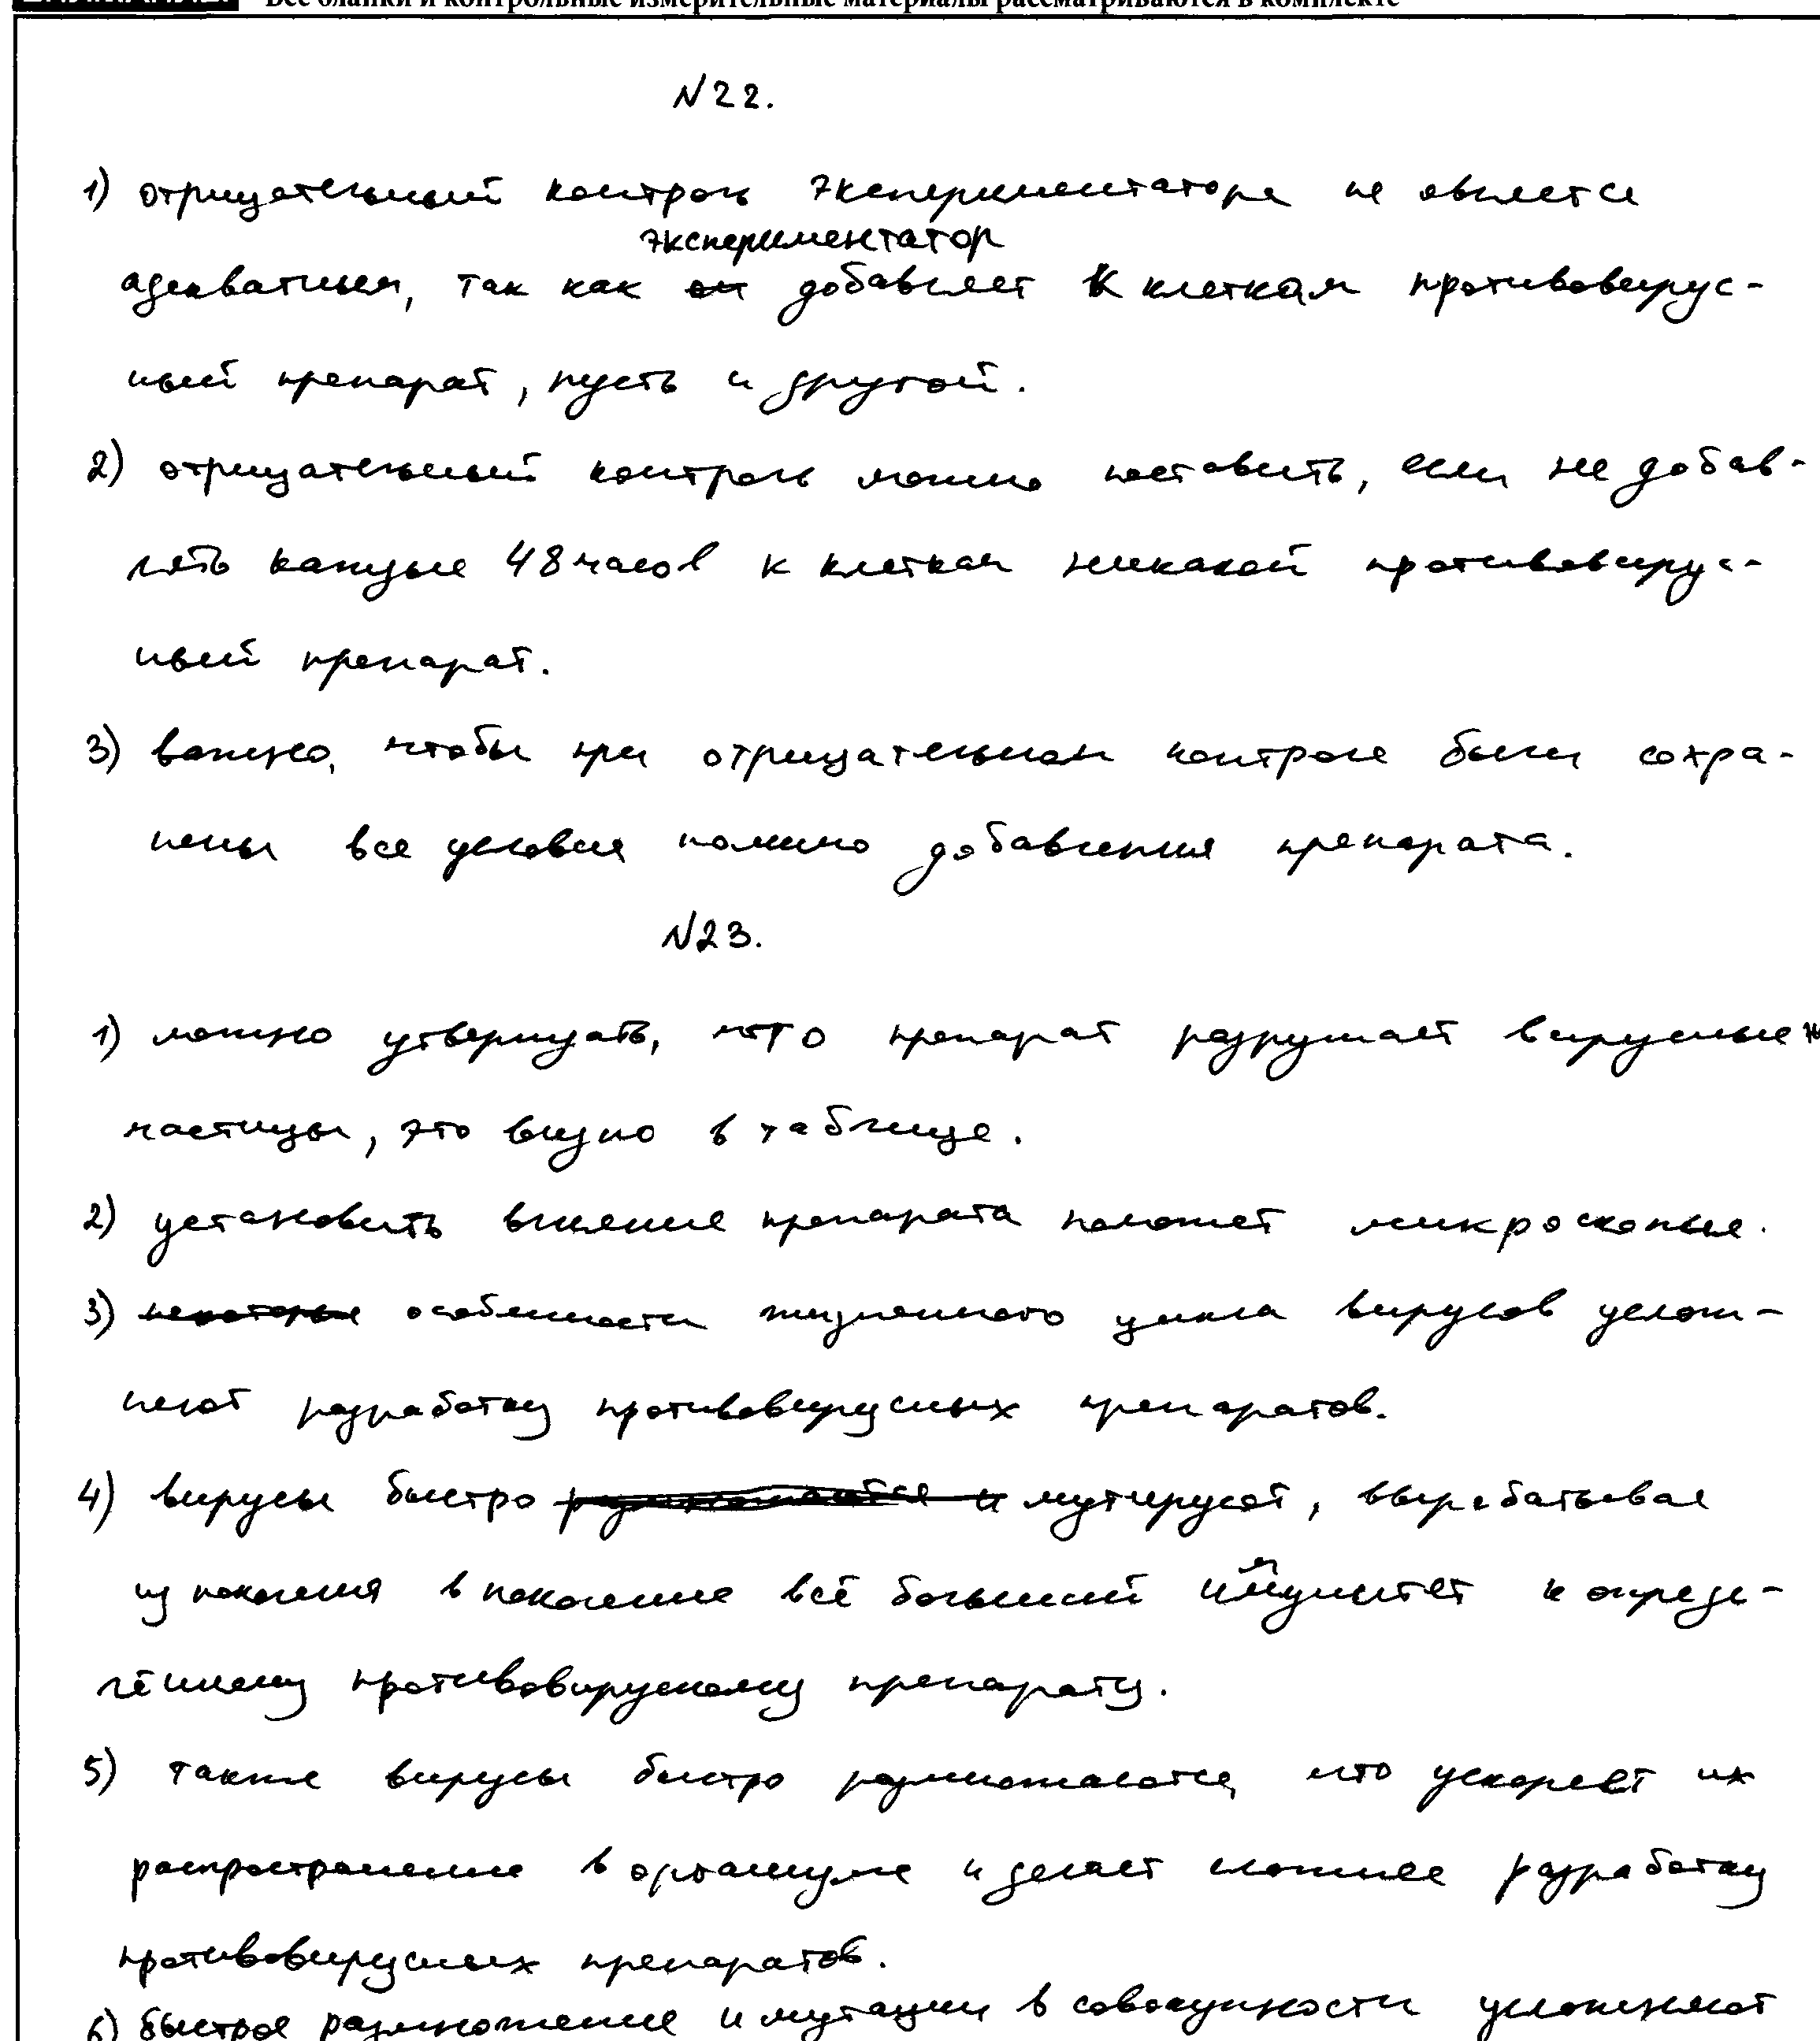 Все бланки и контрольные измерительные материалы рассматриваются в комплекте
N22.
1) отрицательный контроль экспериментатора не является
экспериментатор
адекватным, так как он добавляет к клеткам противовирус-
ный препарат, пусть и другой.
2) отрицательный контроль можно поставить, если не добав-
лять каждые 48 часов к клеткам никакой противовирус-
ный препарат.
3) важно, чтобы при отрицательном контроле были сохра-
нены все условия помимо добавления препарата.
N23.
1) можно утверждать, что препарат разрушает вирусные
частицы, это видно в таблице.
2) установить влияние препарата поможет микроскопия.
3) некоторые особенности жизненного цикла вирусов услож-
няют разработку противовирусных препаратов.
4) вирусы быстро размножаются и мутируют, вырабатывая
из поколения в поколение всё больший иммунитет к опреде-
лённому противовирусному препарату.
5) также вирусы быстро размножаются, что ускоряет их
распространение в организме и делает сложнее разработку
противовирусных препаратов.
6) быстрое размножение и мутации в совокупности усложняют